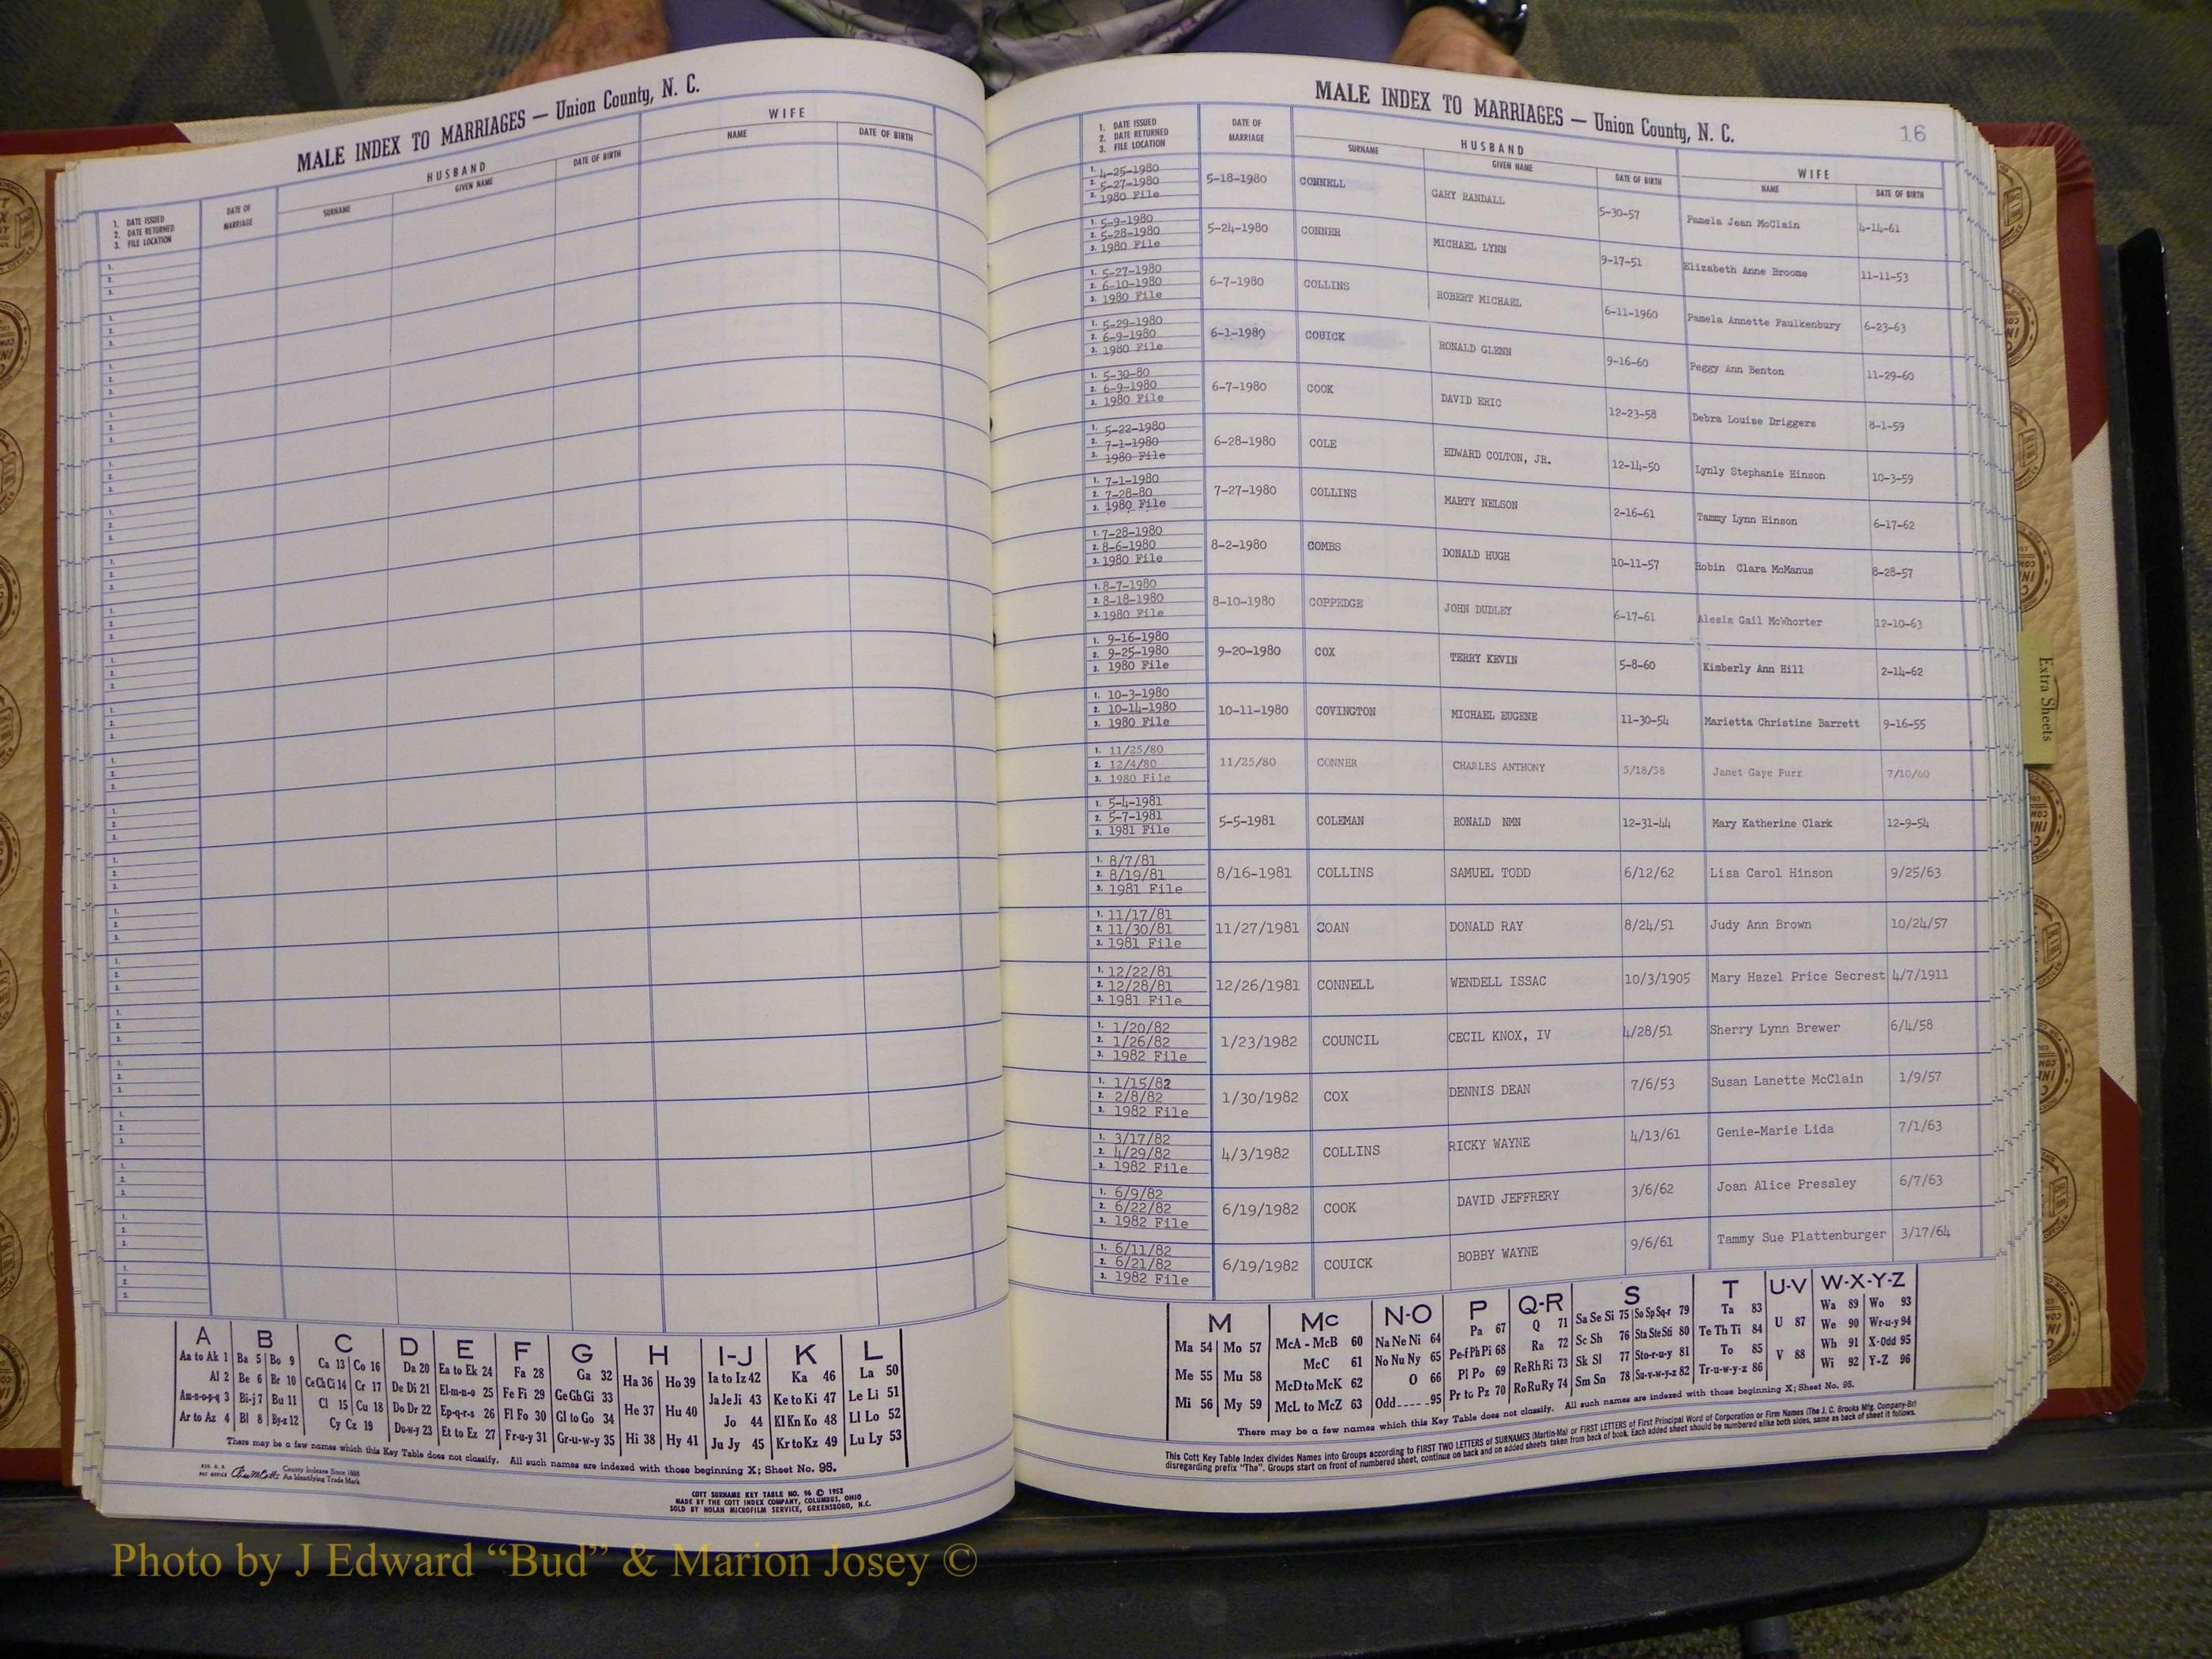 MALE INDEX TO MARRIAGES — Union County, N. C.
1. DATE ISSUED
2. DATE RETURNED
3. FILE LOCATION
DATE OF MARRIAGE
HUSBAND
SURNAME GIVEN NAME DATE OF BIRTH
WIFE
NAME DATE OF BIRTH
MALE INDEX TO MARRIAGES — Union County, N. C.
16
1. DATE ISSUED
2. DATE RETURNED
3. FILE LOCATION
DATE OF MARRIAGE
HUSBAND
SURNAME GIVEN NAME DATE OF BIRTH
WIFE
NAME DATE OF BIRTH
1. 4-25-1980
2. 5-27-1980
3. 1980 File
5-18-1980 CONNELL GARY RANDALL 5-30-57 Pamela Jean McClain 4-14-61
1. 5-9-1980
2. 5-28-1980
3. 1980 File
5-24-1980 CONNER MICHAEL LYNN 9-17-51 Elizabeth Anne Broome 11-11-53
1. 5-27-1980
2. 6-10-1980
3. 1980 File
6-7-1980 COLLINS ROBERT MICHAEL 6-11-1960 Pamela Annette Faulkenbury 6-23-63
1. 5-29-1980
2. 6-9-1980
3. 1980 File
6-1-1980 COUICK RONALD GLENN 9-16-60 Peggy Ann Benton 11-29-60
1. 5-30-80
2. 6-9-1980
3. 1980 File
6-7-1980 COOK DAVID ERIC 12-23-58 Debra Louise Driggers 8-1-59
1. 5-22-1980
2. 7-1-1980
3. 1980 File
6-28-1980 COLE EDWARD COLTON, JR. 12-14-50 Lynly Stephanie Hinson 10-3-59
1. 7-1-1980
2. 7-28-80
3. 1980 File
7-27-1980 COLLINS MARTY NELSON 2-16-61 Tammy Lynn Hinson 6-17-62
1. 7-28-1980
2. 8-6-1980
3. 1980 File
8-2-1980 COMBS DONALD HUGH 10-11-57 Robin Clara McManus 8-28-57
1. 8-7-1980
2. 8-18-1980
3. 1980 File
8-10-1980 COPPEDGE JOHN DUDLEY 6-17-61 Alesia Gail McWhorter 12-10-63
1. 9-16-1980
2. 9-25-1980
3. 1980 File
9-20-1980 COX TERRY KEVIN 5-8-60 Kimberly Ann Hill 2-14-62
1. 10-3-1980
2. 10-14-1980
3. 1980 File
10-11-1980 COVINGTON MICHAEL EUGENE 11-30-54 Marietta Christine Barrett 9-16-55
1. 11/25/80
2. 12/4/80
3. 1980 File
11/25/80 CONNER CHARLES ANTHONY 5/18/58 Janet Gaye Furr 7/10/60
1. 5-4-1981
2. 5-7-1981
3. 1981 File
5-5-1981 COLEMAN RONALD NMN 12-31-44 Mary Katherine Clark 12-9-54
1. 8/7/81
2. 8/19/81
3. 1981 File
8/16-1981 COLLINS SAMUEL TODD 6/12/62 Lisa Carol Hinson 9/25/63
1. 11/17/81
2. 11/30/81
3. 1981 File
11/27/1981 COAN DONALD RAY 8/24/51 Judy Ann Brown 10/24/57
1. 12/22/81
2. 12/28/81
3. 1981 File
12/26/1981 CONNELL WENDELL ISSAC 10/3/1905 Mary Hazel Price Secrest 4/7/1911
1. 1/20/82
2. 1/26/82
3. 1982 File
1/23/1982 COUNCIL CECIL KNOX, IV 4/28/51 Sherry Lynn Brewer 6/4/58
1. 1/15/82
2. 2/8/82
3. 1982 File
1/30/1982 COX DENNIS DEAN 7/6/53 Susan Lanette McClain 1/9/57
1. 3/17/82
2. 4/29/82
3. 1982 File
4/3/1982 COLLINS RICKY WAYNE 4/13/61 Genie-Marie Lida 7/1/63
1. 6/9/82
2. 6/22/82
3. 1982 File
6/19/1982 COOK DAVID JEFFRERY 3/6/62 Joan Alice Pressley 6/7/63
1. 6/11/82
2. 6/21/82
3. 1982 File
6/19/1982 COUICK BOBBY WAYNE 9/6/61 Tammy Sue Plattenburger 3/17/64
Extra Sheets
A B C D E F G H I-J K L
Aa to Ak 1 Ba 5 Bo 9 Ca 13 Co 16 Da 20 Ea to Ek 24 Fa 28 Ga 32 Ha 36 Ho 39 Ia to Iz 42 Ka 46 La 50
Al 2 Be 6 Br 10 Ce Ch Ci 14 Cr 17 De Di 21 El-m-n-o 25 Fe Fi 29 Ge Gh Gi 33 He 37 Hu 40 Ja Je Ji 43 Ke to Ki 47 Le Li 51
Am-n-o-p-q 3 Bi-j 7 Bu 11 Cl 15 Cu 18 Do Dr 22 Ep-q-r-s 26 Fl Fo 30 Gl to Go 34 Hi 38 Hy 41 Jo 44 Kl Kn Ko 48 Ll Lo 52
Ar to Az 4 Bl 8 By-z 12 Cy Cz 19 Du-w-y 23 Et to Ez 27 Fr-u-y 31 Gr-u-w-y 35 Ju Jy 45 Kr to Kz 49 Lu Ly 53
There may be a few names which this Key Table does not classify. All such names are indexed with those beginning X; Sheet No. 95.
County Indexes Since 1888
An Identifying Trade Mark
COTT SURNAME KEY TABLE NO. 96 © 1952
MADE BY THE COTT INDEX COMPANY, COLUMBUS, OHIO
SOLD BY NOLAN MICROFILM SERVICE, GREENSBORO, N.C.
M Mc N-O P Q-R S T U-V W-X-Y-Z
Ma 54 Mo 57 McA - McB 60 Na Ne Ni 64 Pa 67 Q 71 Sa Se Si 75 So Sp Sq-r 79 Ta 83 U 87 Wa 89 Wo 93
Me 55 Mu 58 McC 61 No Nu Ny 65 Pe-f Ph Pi 68 Ra 72 Sc Sh 76 Sta Ste Sti 80 Te Th Ti 84 V 88 We 90 Wr-u-y 94
Mi 56 My 59 McD to McK 62 O 66 Pl Po 69 Re Rh Ri 73 Sk Sl 77 Sto-r-u-y 81 To 85 Wh 91 X-Odd 95
McL to McZ 63 Odd 95 Pr to Pz 70 Ro Ru Ry 74 Sm Sn 78 Su-v-w-y-z 82 Tr-u-w-y-z 86 Wi 92 Y-Z 96
There may be a few names which this Key Table does not classify. All such names are indexed with those beginning X; Sheet No. 95.
This Cott Key Table Index divides Names into Groups according to FIRST TWO LETTERS of SURNAMES (Martin-Ma) or FIRST LETTERS of First Principal Word of Corporation or Firm Names (The J. C. Brooks Mfg. Company-Br)
disregarding prefix "The". Groups start on front of numbered sheet, continue on back and on added sheets taken from back of book. Each added sheet should be numbered alike both sides, same as back of sheet it follows.
Photo by J Edward “Bud” & Marion Josey ©